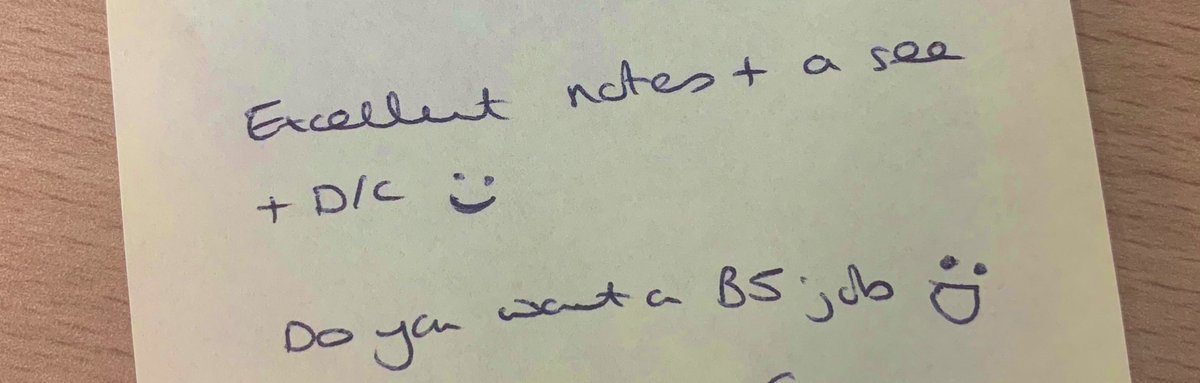 Excellent notes + a see
+ D/C
Do you want a B5 job